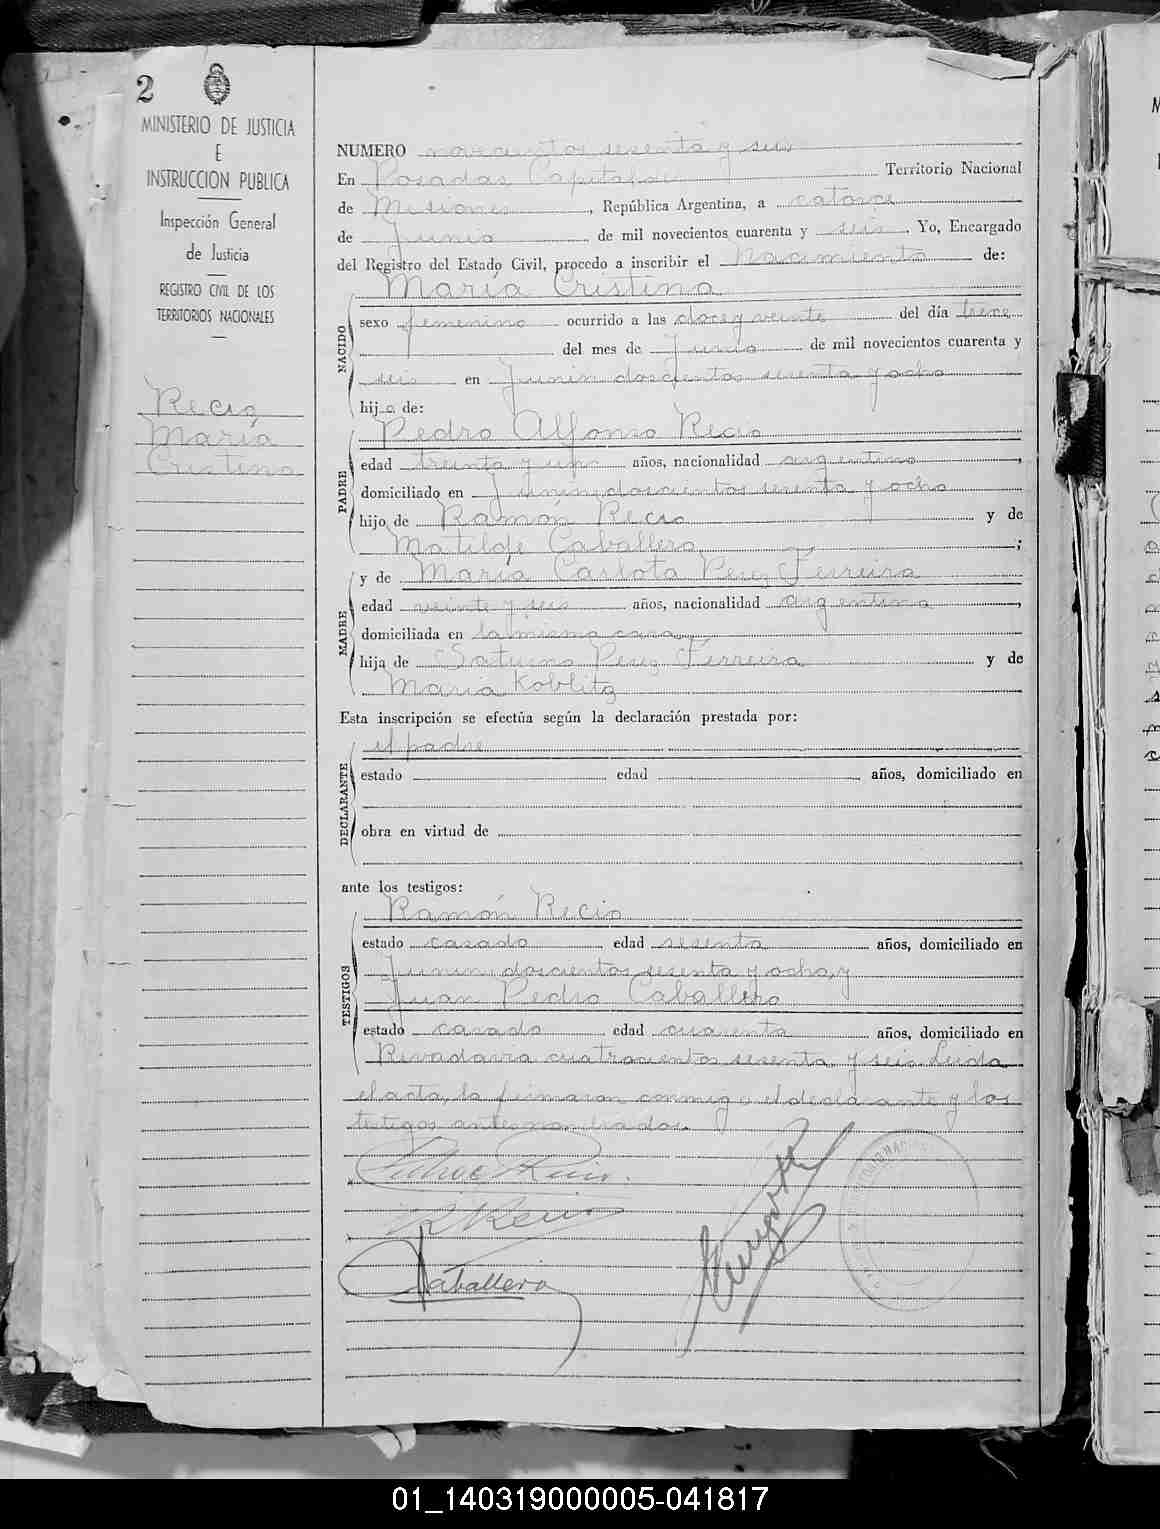 2
MINISTERIO DE JUSTICIA
E
INSTRUCCION PUBLICA
Inspección General
de Justicia
REGISTRO CIVIL DE LOS
TERRITORIOS NACIONALES
Recio
María
Cristina
NUMERO novecientos sesenta y seis
En Posadas Capital de Territorio Nacional
de Misiones, República Argentina, a catorce
de Junio de mil novecientos cuarenta y seis. Yo, Encargado
del Registro del Estado Civil, procedo a inscribir el Nacimiento de:
NACIDO
María Cristina
sexo femenino ocurrido a las doce y veinte del día trece
del mes de Junio de mil novecientos cuarenta y
seis en Junin doscientos sesenta y ocho
hija de:
PADRE
Pedro Alfonso Recio
edad treinta y uno años, nacionalidad argentino,
domiciliado en Junin doscientos sesenta y ocho
hijo de Ramón Recio y de
Matilde Caballero;
MADRE
y de María Carlota Perez Ferreira
edad veinte y seis años, nacionalidad argentina,
domiciliada en la misma casa
hija de Saturno Perez Ferreira y de
María Koblitz
Esta inscripción se efectúa según la declaración prestada por:
DECLARANTE
el padre
estado edad años, domiciliado en
obra en virtud de
ante los testigos:
TESTIGOS
Ramón Recio
estado casado edad sesenta años, domiciliado en
Junin doscientos sesenta y ocho, y
Juan Pedro Caballero
estado casado edad cuarenta años, domiciliado en
Rivadavia cuatrocientos sesenta y seis. Leida
el acta, la firmaron conmigo el declarante y los
testigos antes nombrados.
R Recio
Caballero
01_140319000005-041817